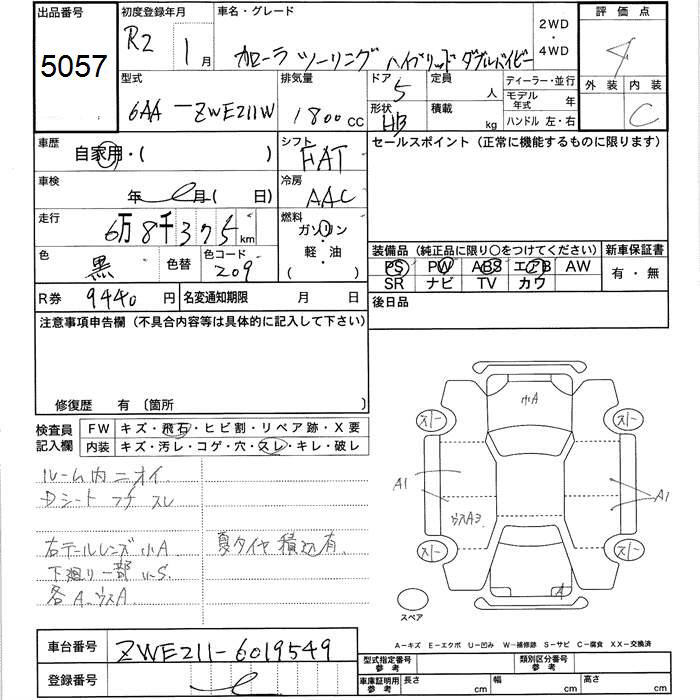 出品番号
5057
初度登録年月
R2 1月
車名・グレード
カローラ ツーリング ハイブリッド ダブルバイビー
2WD
・
4WD
評価点
4
外装 内装
C
型式
6AA-ZWE211W
排気量
1800 cc
ドア 5
形状 HB
定員 人
積載 kg
ディーラー・並行
モデル年式 年
ハンドル 左・右
車歴
自家用・( )
シフト
FAT
セールスポイント(正常に機能するものに限ります)
車検
年 月( 日)
冷房
AAC
走行
6万8千375km
燃料
ガソリン
軽・油
( )
色
黒
色替
色コード
209
装備品(純正品に限り○をつけてください)
新車保証書
PS PW ABS エアB AW
SR ナビ TV カワ
有・無
R券 9440円
名変通知期限 月 日
後日品
注意事項申告欄(不具合内容等は具体的に記入して下さい)
修復歴 有 〔箇所 〕
検査員
記入欄
FW キズ・飛石・ヒビ割・リペア跡・X要
内装 キズ・汚レ・コゲ・穴・スレ・キレ・破レ
ルーム内ニオイ
Dシート フチ スレ
右テールレンズ小A
夏タイヤ積込有
下廻り一部小S
各A、ウスA
小A
スノー スノー
A1
A1
ウスA3
スノー スノー
A
スペア
A-キズ E-エクボ U-凹み W-補修跡 S-サビ C-腐食 XX-交換済
車台番号
ZWE211-6019549
登録番号
型式指定番号
参考
類別区分番号
参考
車庫証明用
参考
長さ cm
幅 cm
高さ cm